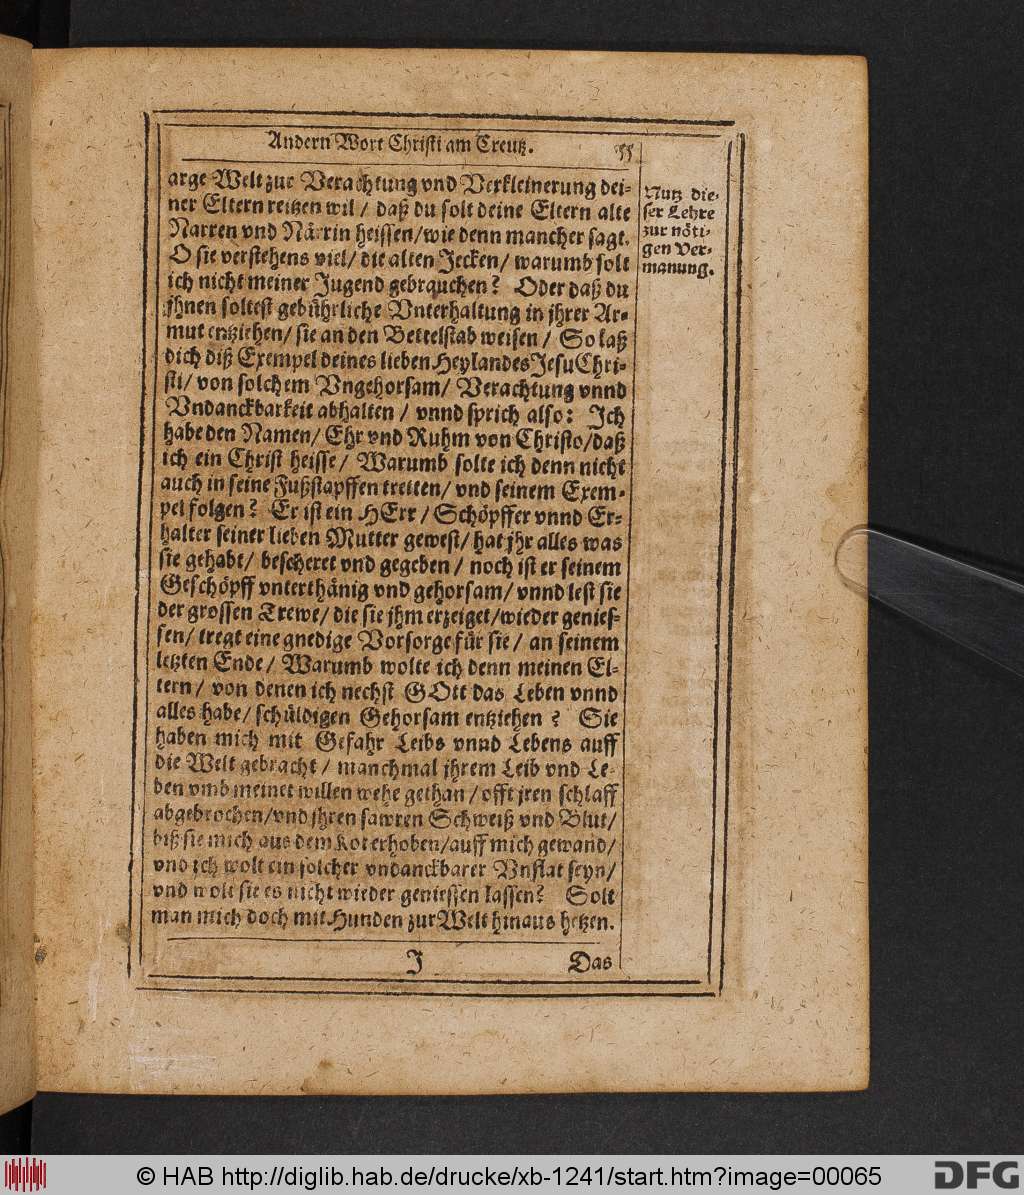 Andern Wort Christi am Creutz. 55
arge Welt zur Verachtung vnd Verkleinerung dei-
ner Eltern reitzen wil / daß du solt deine Eltern alte
Narren vnd Närrin heissen/wie denn mancher sagt.
O sie verstehens viel/ die alten Jecken/ warumb solt
ich nicht meiner Jugend gebrauchen? Oder daß du
jhnen soltest gebührliche Vnterhaltung in jhrer Ar-
mut entziehen/ sie an den Bettelstab weisen / So laß
dich diß Exempel deines lieben Heylandes Jesu Chri-
sti/ von solchem Vngehorsam/ Verachtung vnnd
Vndanckbarkeit abhalten / vnnd sprich also: Ich
habe den Namen/ Ehr vnd Ruhm von Christo/daß
ich ein Christ heisse/ Warumb solte ich denn nicht
auch in seine Fußstapffen tretten/ vnd seinem Exem-
pel folgen? Er ist ein HErr / Schöpffer vnnd Er-
halter seiner lieben Mutter gewest/ hat jhr alles was
sie gehabt/ bescheret vnd gegeben / noch ist er seinem
Geschöpff vnterthänig vnd gehorsam/ vnnd lest sie
der grossen Trewe/ die sie jhm erzeiget/wieder genies-
sen/ tregt eine gnedige Vorsorge für sie/ an seinem
letzten Ende/ Warumb wolte ich denn meinen El-
tern/ von denen ich nechst GOtt das Leben vnnd
alles habe/ schüldigen Gehorsam entziehen? Sie
haben mich mit Gefahr Leibs vnnd Lebens auff
die Welt gebracht / manchmal jhrem Leib vnd Le-
ben vmb meinet willen wehe gethan / offt jren schlaff
abgebrochen/vnd jhren sawren Schweiß vnd Blut/
biß sie mich aus dem Kot erhoben/auff mich gewand/
vnd ich wolt ein solcher vndanckbarer Vnflat seyn/
vnd wolt sie es nicht wieder geniessen lassen? Solt
man mich doch mit Hunden zur Welt hinaus hetzen.
J Das
Nutz die-
ser Lehre
zur nöti-
gen Ver-
manung.
© HAB http://diglib.hab.de/drucke/xb-1241/start.htm?image=00065
DFG